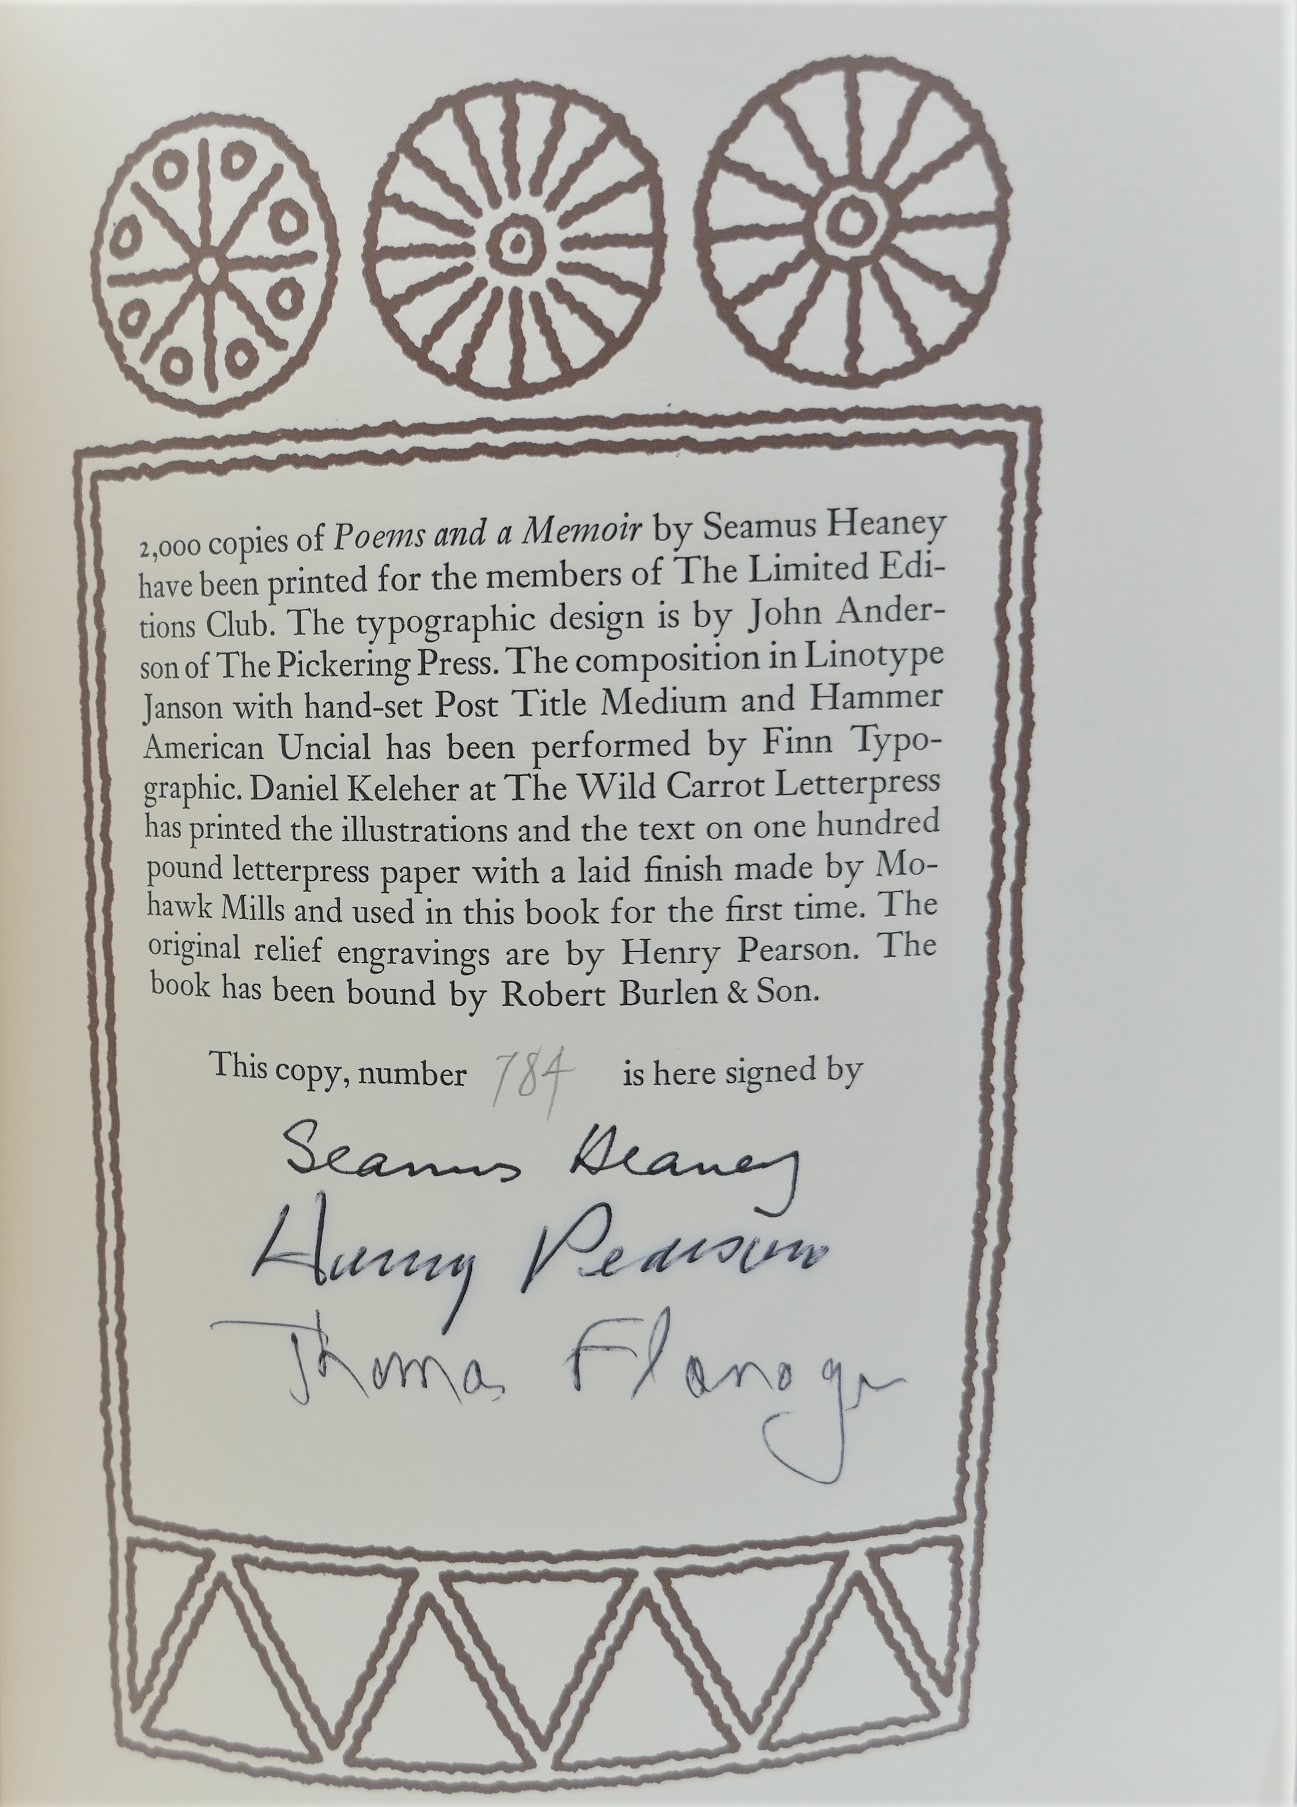 2,000 copies of Poems and a Memoir by Seamus Heaney
have been printed for the members of The Limited Edi-
tions Club. The typographic design is by John Ander-
son of The Pickering Press. The composition in Linotype
Janson with hand-set Post Title Medium and Hammer
American Uncial has been performed by Finn Typo-
graphic. Daniel Keleher at The Wild Carrot Letterpress
has printed the illustrations and the text on one hundred
pound letterpress paper with a laid finish made by Mo-
hawk Mills and used in this book for the first time. The
original relief engravings are by Henry Pearson. The
book has been bound by Robert Burlen & Son.
This copy, number 784 is here signed by
Seamus Heaney
Henry Pearson
Thomas Flanagan